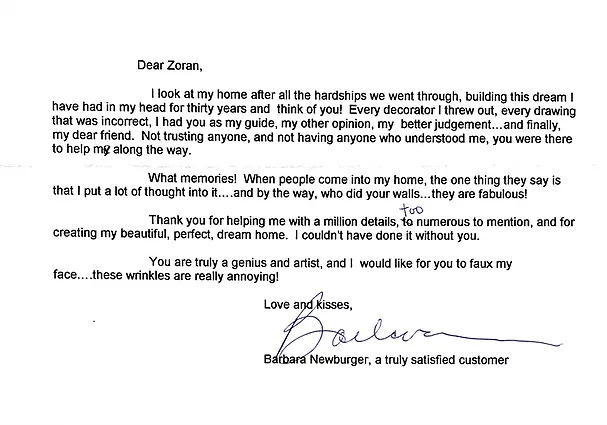 Dear Zoran,
I look at my home after all the hardships we went through, building this dream I
have had in my head for thirty years and think of you! Every decorator I threw out, every drawing
that was incorrect, I had you as my guide, my other opinion, my better judgement...and finally,
my dear friend. Not trusting anyone, and not having anyone who understood me, you were there
to help me along the way.
What memories! When people come into my home, the one thing they say is
that I put a lot of thought into it....and by the way, who did your walls...they are fabulous!
too
Thank you for helping me with a million details, to numerous to mention, and for
creating my beautiful, perfect, dream home. I couldn't have done it without you.
You are truly a genius and artist, and I would like for you to faux my
face....these wrinkles are really annoying!
Love and kisses,
Barbara
Barbara Newburger, a truly satisfied customer